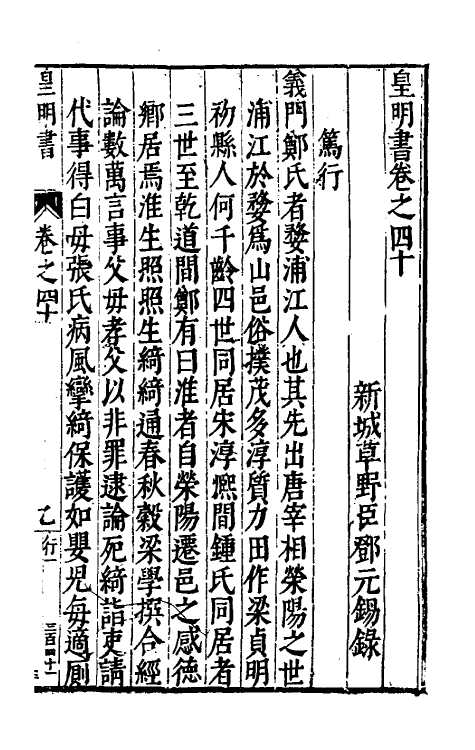 皇明書卷之四十
新城草野臣鄧元錫錄
篤行
義門鄭氏者婺浦江人也其先出唐宰相榮陽之世
浦江於婺為山邑俗撲茂多淳質力田作梁貞明
初縣人何千齡四世同居宋淳熈間鍾氏同居者
三世至乾道間鄭有曰淮者自榮陽遷邑之感德
鄉居焉淮生照照生綺綺通春秋穀梁學撰合經
論數萬言事父母孝父以非罪逮論死綺詣吏請
代事得白母張氏病風攣綺保護如嬰兒每適厠
皇明書
卷之四十
乙行一
三百四十一